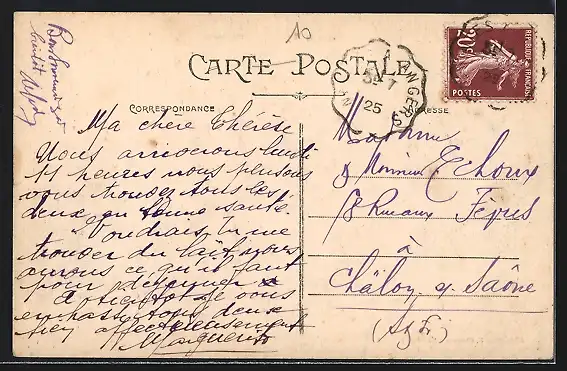 Bonjour
bientôt
10
CARTE POSTALE
CORRESPONDANCE
ADRESSE
RÉPUBLIQUE FRANÇAISE
20c
POSTES
ANGERS
25
Ma chère Thérèse
Nous arrivons lundi
11 heures nous pensons
vous trouver tous les
deux en bonne santé.
Voudrais tu me
trouver du lait, nous
aurons ce qu'il faut
pour déjeuner
A bientôt je vous
embrasse tous deux
bien affectueusement
Marguerite
Madame
& Monsieur Echoux
18 Rue aux Fèves
à
Châlon s/ Saône
(S & L)